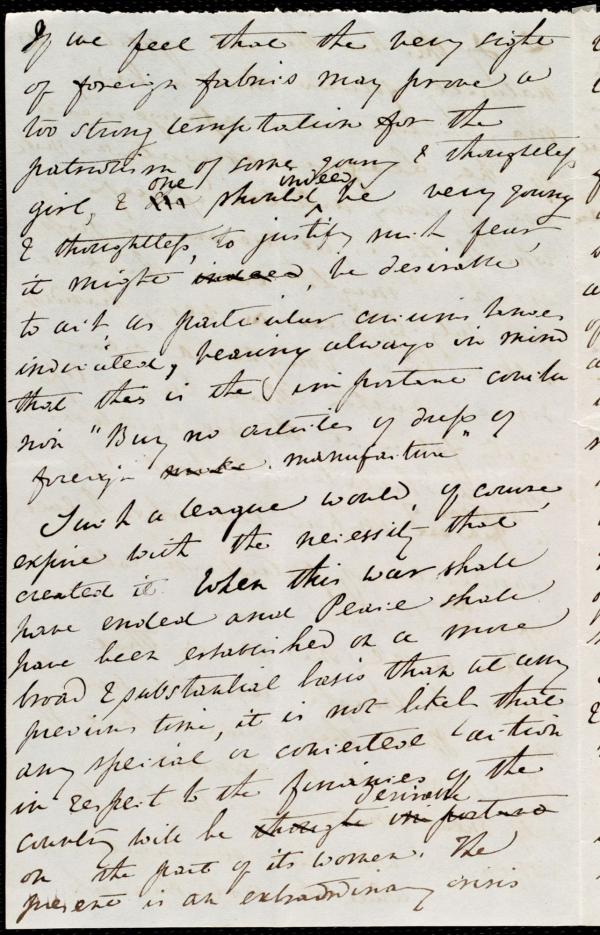 If we feel that the very sight
of foreign fabrics may prove a
too strong temptation for the
patriotism of some young & thoughtless
girl, & one should, indeed, be very young
& thoughtless, to justify such fear,
it might indeed, be desirable
to act as particular circumstances
indicated, bearing always in mind
that this is the important condi
tion "Buy no articles of dress of
foreign make manufacture"
Such a league would, of course,
expire with the necessity that
created it. When this war shall
have ended and Peace shall
have been established on a more
broad & substantial basis than at any
previous time, it is not likely that
any special or concerted action
in respect to the finances of the
country will be thought important desirable
on the part of its women. The
present is an extraordinary crisis